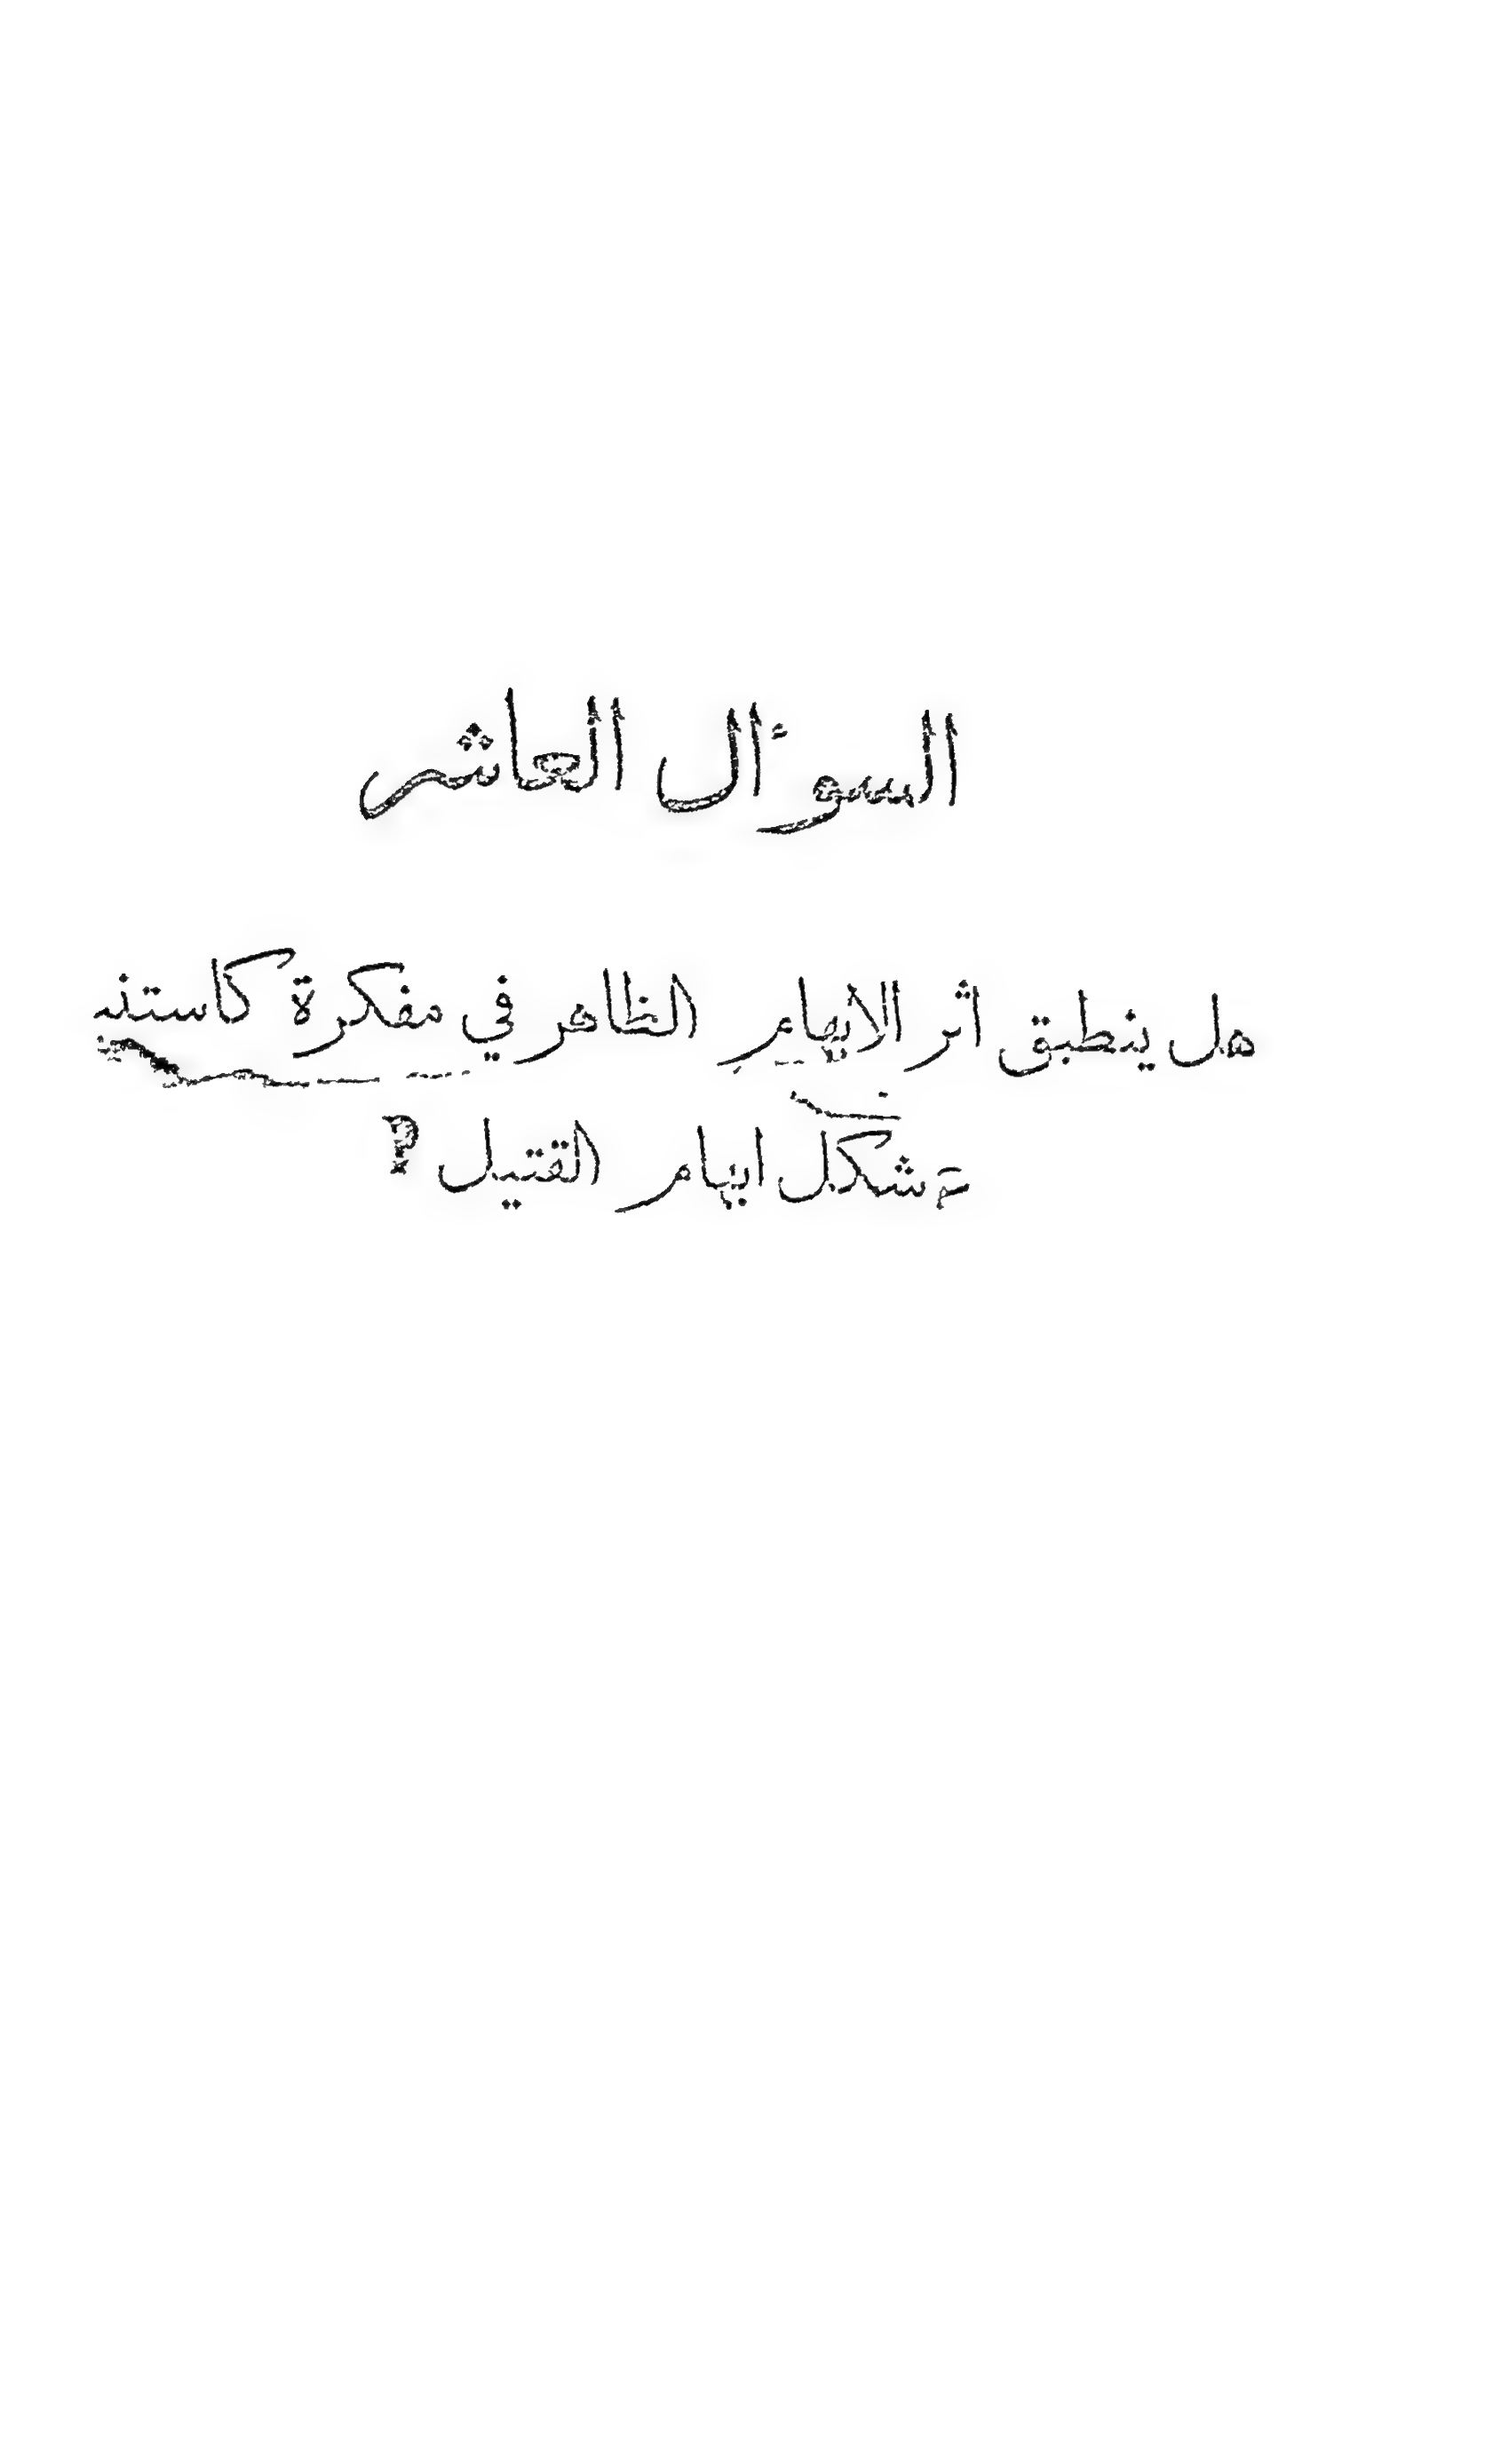 السوٴال العاشر
هل ينطبق أثر الابهام الظاهر في مفكرة
شكل ابهام القتيل ؟